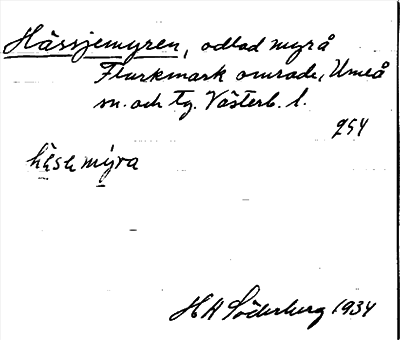 Hässjemyren, odlad myr å
Flurkmark område, Umeå
sn. och tg. Västerb. l.
954
häsɩmýra
H A Söderberg 1934